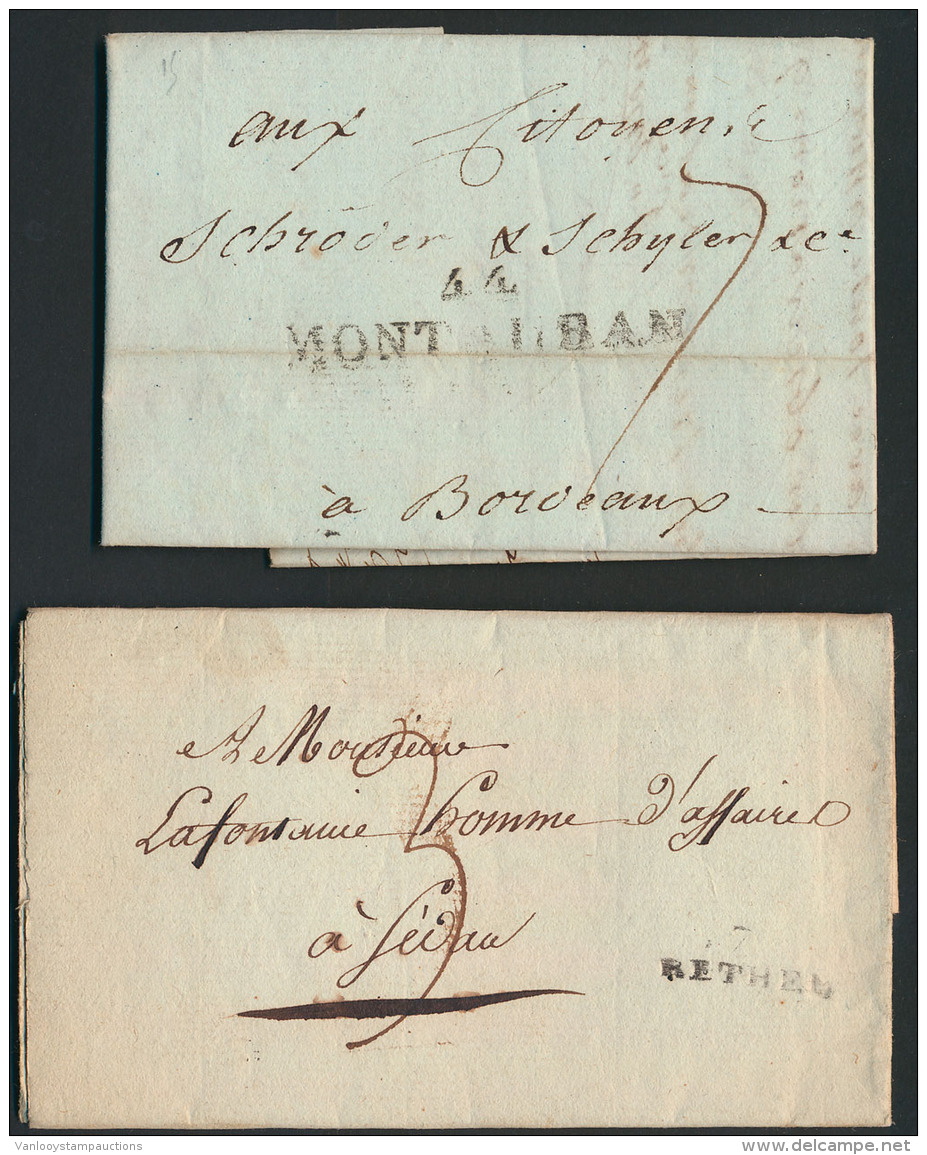 15
aux Citoyens
Schröder & Schyler & Ce
7
44
MONTAUBAN
à Bordeaux
A Monsieur
Lafontaine homme d'affaires
3
à Sédan
RETHEL
Vanlooystampauctions
delcampe.net